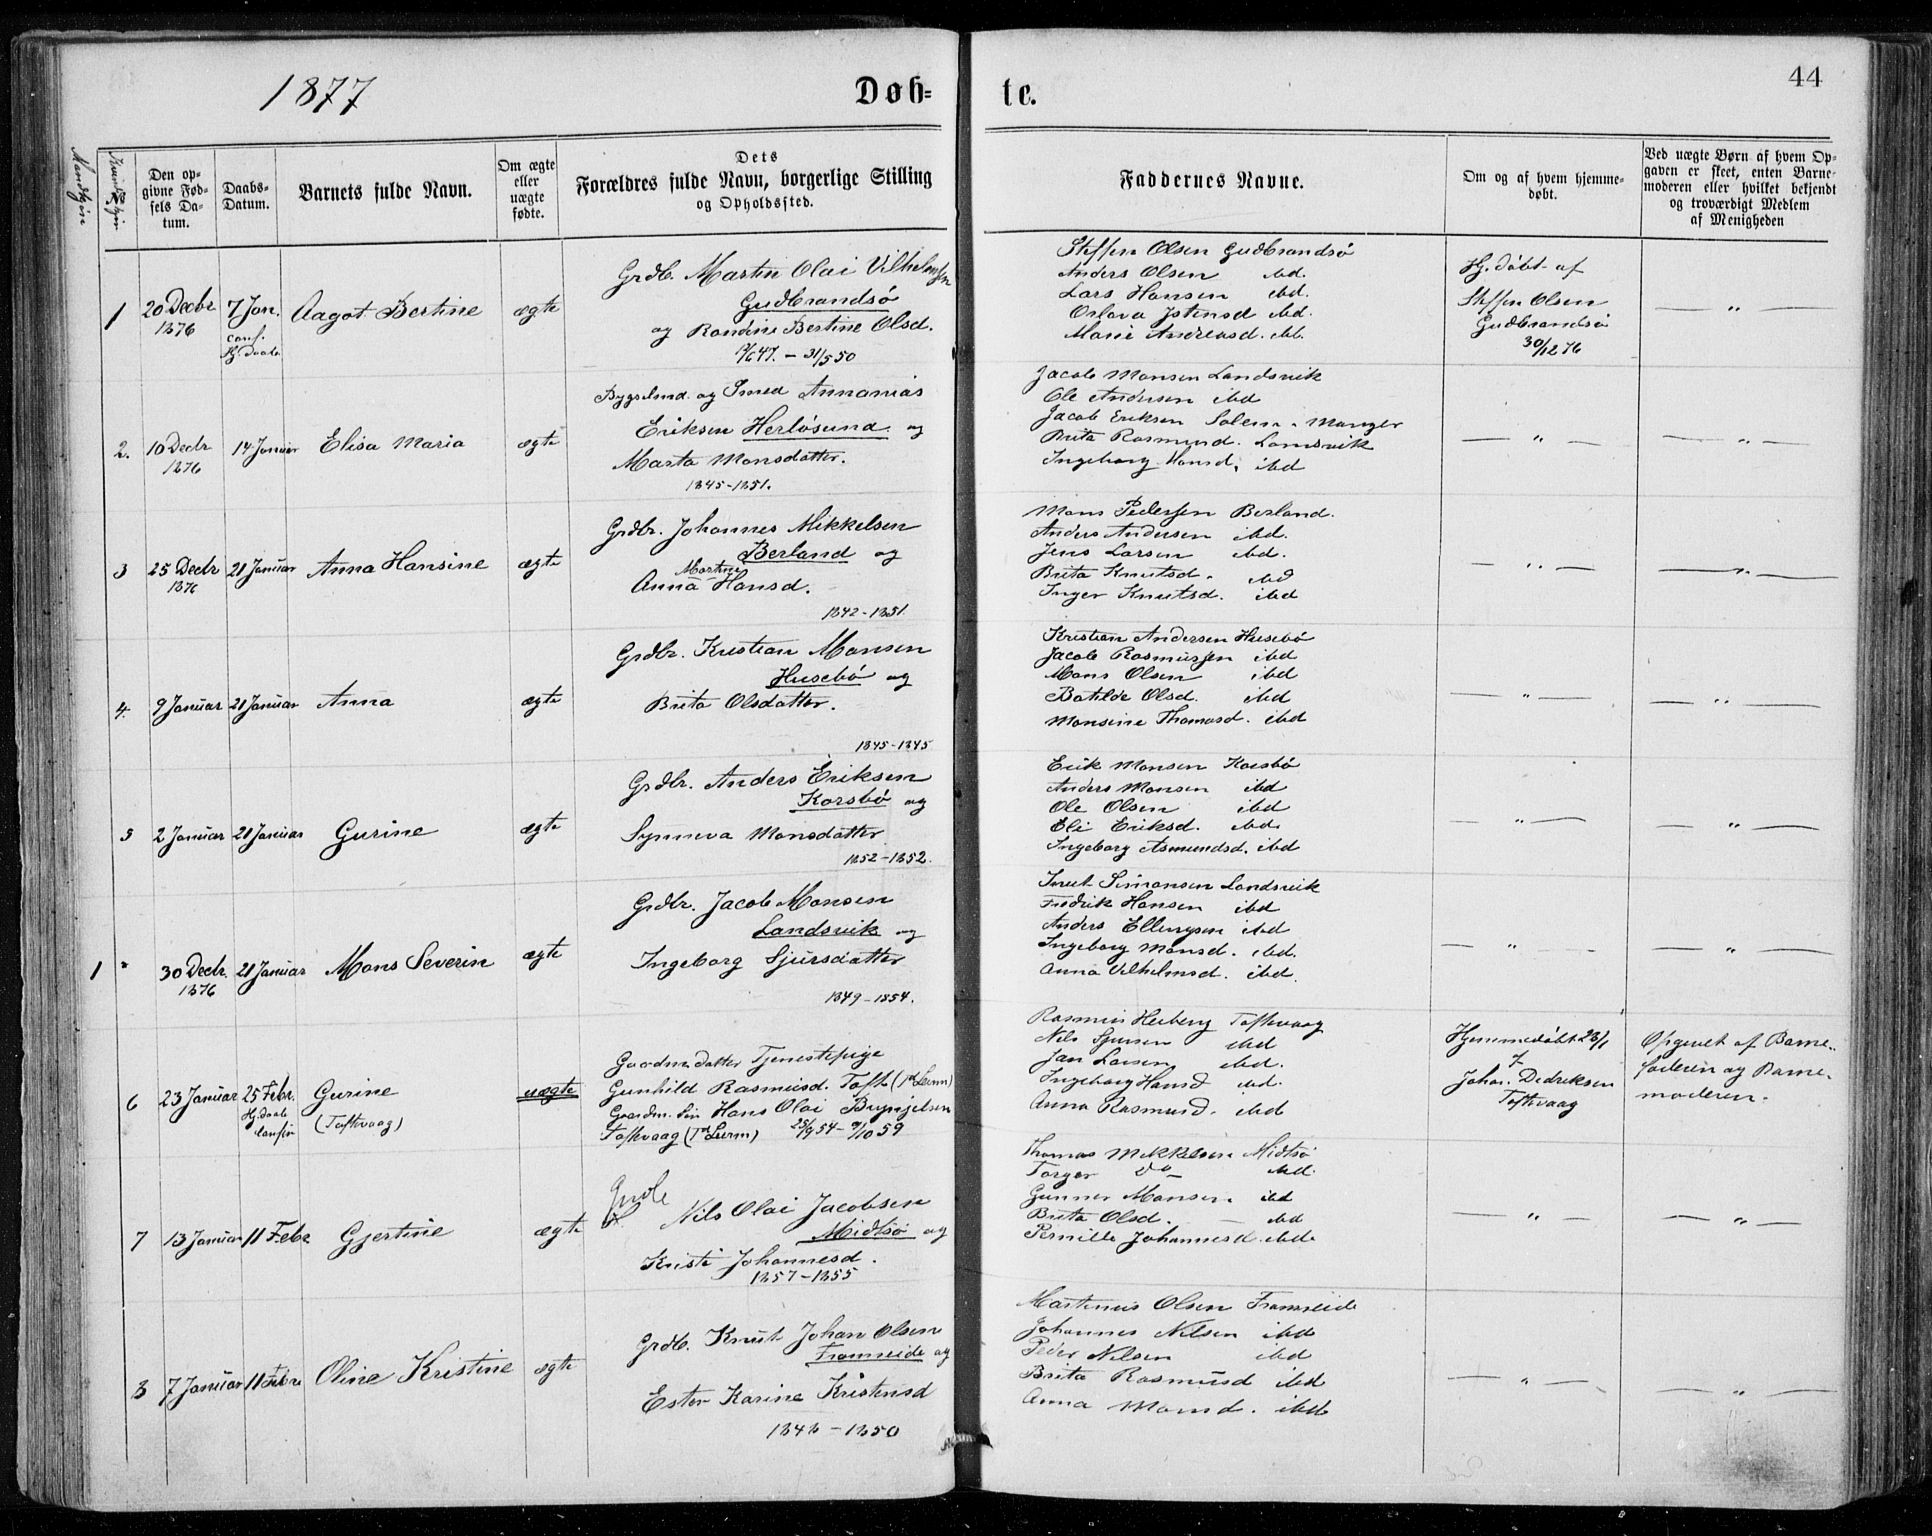 1877
Døb=
te.
44
Mandkjøn
Kvindekjøn
Den op-
givne Fød-
sels Da-
tum.
Daabs-
Datum.
Barnets fulde Navn.
Om ægte
eller
uægte
fødte.
Dets
Forældres fulde Navn, borgerlige Stilling
og Opholdssted.
Faddernes Navne.
Om og af hvem hjemme-
døbt.
Ved uægte Børn af hvem Op-
gaven er skeet, enten Barne-
moderen eller hvilket bekjendt
og troværdigt Medlem
af Menigheden
1
20 Decbr
1876
7 Jan.
conf.
Hj. daab
Aagot Bertine
ægte
Grdb. Martin Olai Vilhelmsen
Gudbrandsø
og Randine Bertine Olsd.
/6 47. – 31/5 50
Steffen Olsen Gudbrandsø
Anders Olsen ibd.
Lars Hansen ibd.
Orlava Jstensd ibd.
Marie Andreasd. ibd.
Hj. døbt af
Steffen Olsen
Gudbrandsø
30/12 76
— " —
2.
10 Decbr
1876
14 Januar
Elisa Maria
ægte
Bygselmd. og Smed Annanias
Eriksen Herløsund og
Marta Monsdatter.
1845-1851.
Jacob Monsen Landsvik
Ole Andersen ibd
Jacob Eriksen Solem Manger
Brita Rasmusd. Landsvik
Ingeborg Monsd. ibd
— " —
— " —
3
25 Decbr
1876
21 Januar
Anna Hansine
ægte
Grdbr. Johannes Mikkelsen
Berland og
Martine
Anna Hansd.
1842-1851.
Mons Pedersen Berland.
Anders Andersen ibd.
Jens Larsen ibd.
Brita Knutsd. ibd
Inger Knutsd. ibd
— " —
— " —
4.
9 Januar
21 Januar
Anna
ægte
Grdbr. Kristian Monsen
Husebø og
Brita Olsdatter.
1845-1845
Kristian Andersen Husebø
Jacob Rasmussen ibd
Mons Olsen ibd
Batilde Olsd. ibd
Monsine Thomasd. ibd
— " —
— " —
5
2 Januar
21 Januar
Gurine
ægte
Grdbr. Anders Eriksen
Korsbø og
Synneva Monsdatter
1852-1852.
Erik Monsen Korsbø
Anders Monsen ibd
Ole Olsen ibd
Eli Eriksd. ibd.
Ingeborg Asmundsd. ibd
— " —
— " —
1 "
30 Decbr.
1876
21 Januar
Mons Severin
ægte
Grdbr. Jacob Monsen
Landsvik og
Ingeborg Sjursdatter
1849-1854.
Knut Simonsen Landsvik
Fredrik Hansen ibd
Anders Ellingsen ibd
Ingeborg Monsd. ibd.
Anna Vilhelmsd. ibd.
— " —
— " —
6
23 Januar
25 Febr.
Hj. daab
confir
Gurine
(Toftevaag)
uægte
Gaardm. datter Tjenestepige
Gunhild Rasmusd. Toft (1st Leirm)
Gaardm. Søn Hans Olai Brynjelsen
Toftevaag (1st Leirm) 25/9 54 – 9/10 59
Rasmus Herberg Toftevaag
Nils Sjursen ibd
Jan Larsen ibd.
Ingeborg Hansd ibd.
Anna Rasmusd. ibd
Hjemmedøbt 23/1
af
Johan. Dedriksen
Toftevaag
Opgivet af Barne-
faderen og Barne-
moderen.
7
13 Januar
11 Febr
Gjertine
ægte
Grdb
Nils Olai Jacobsen
Midtsø og
Kristi Johannesd.
1857-1855
Thomas Mikkelsen Midtsø
Torger do ibd.
Gunner Monsen ibd
Brita Olsd. — ibd
Pernille Johannesd. ibd
— " —
— " —
8
7 Januar
11 Febr
Oline Kristine
ægte
Grdb. Knut Johan Olsen
Fromreide og
Ester Karine Kristensd
1848 – 1850
Martinus Olsen Fromreide
Johannes Nilsen ibd
Peder Nilsen ibd
Brita Rasmusd ibd
Anna Monsd. ibd
— " —
— " —